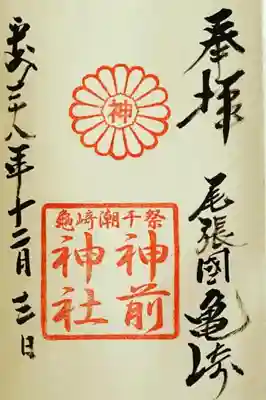 奉拝
尾張國亀崎
神
龜崎潮干祭
神前
神社
平成二十八年十二月三日